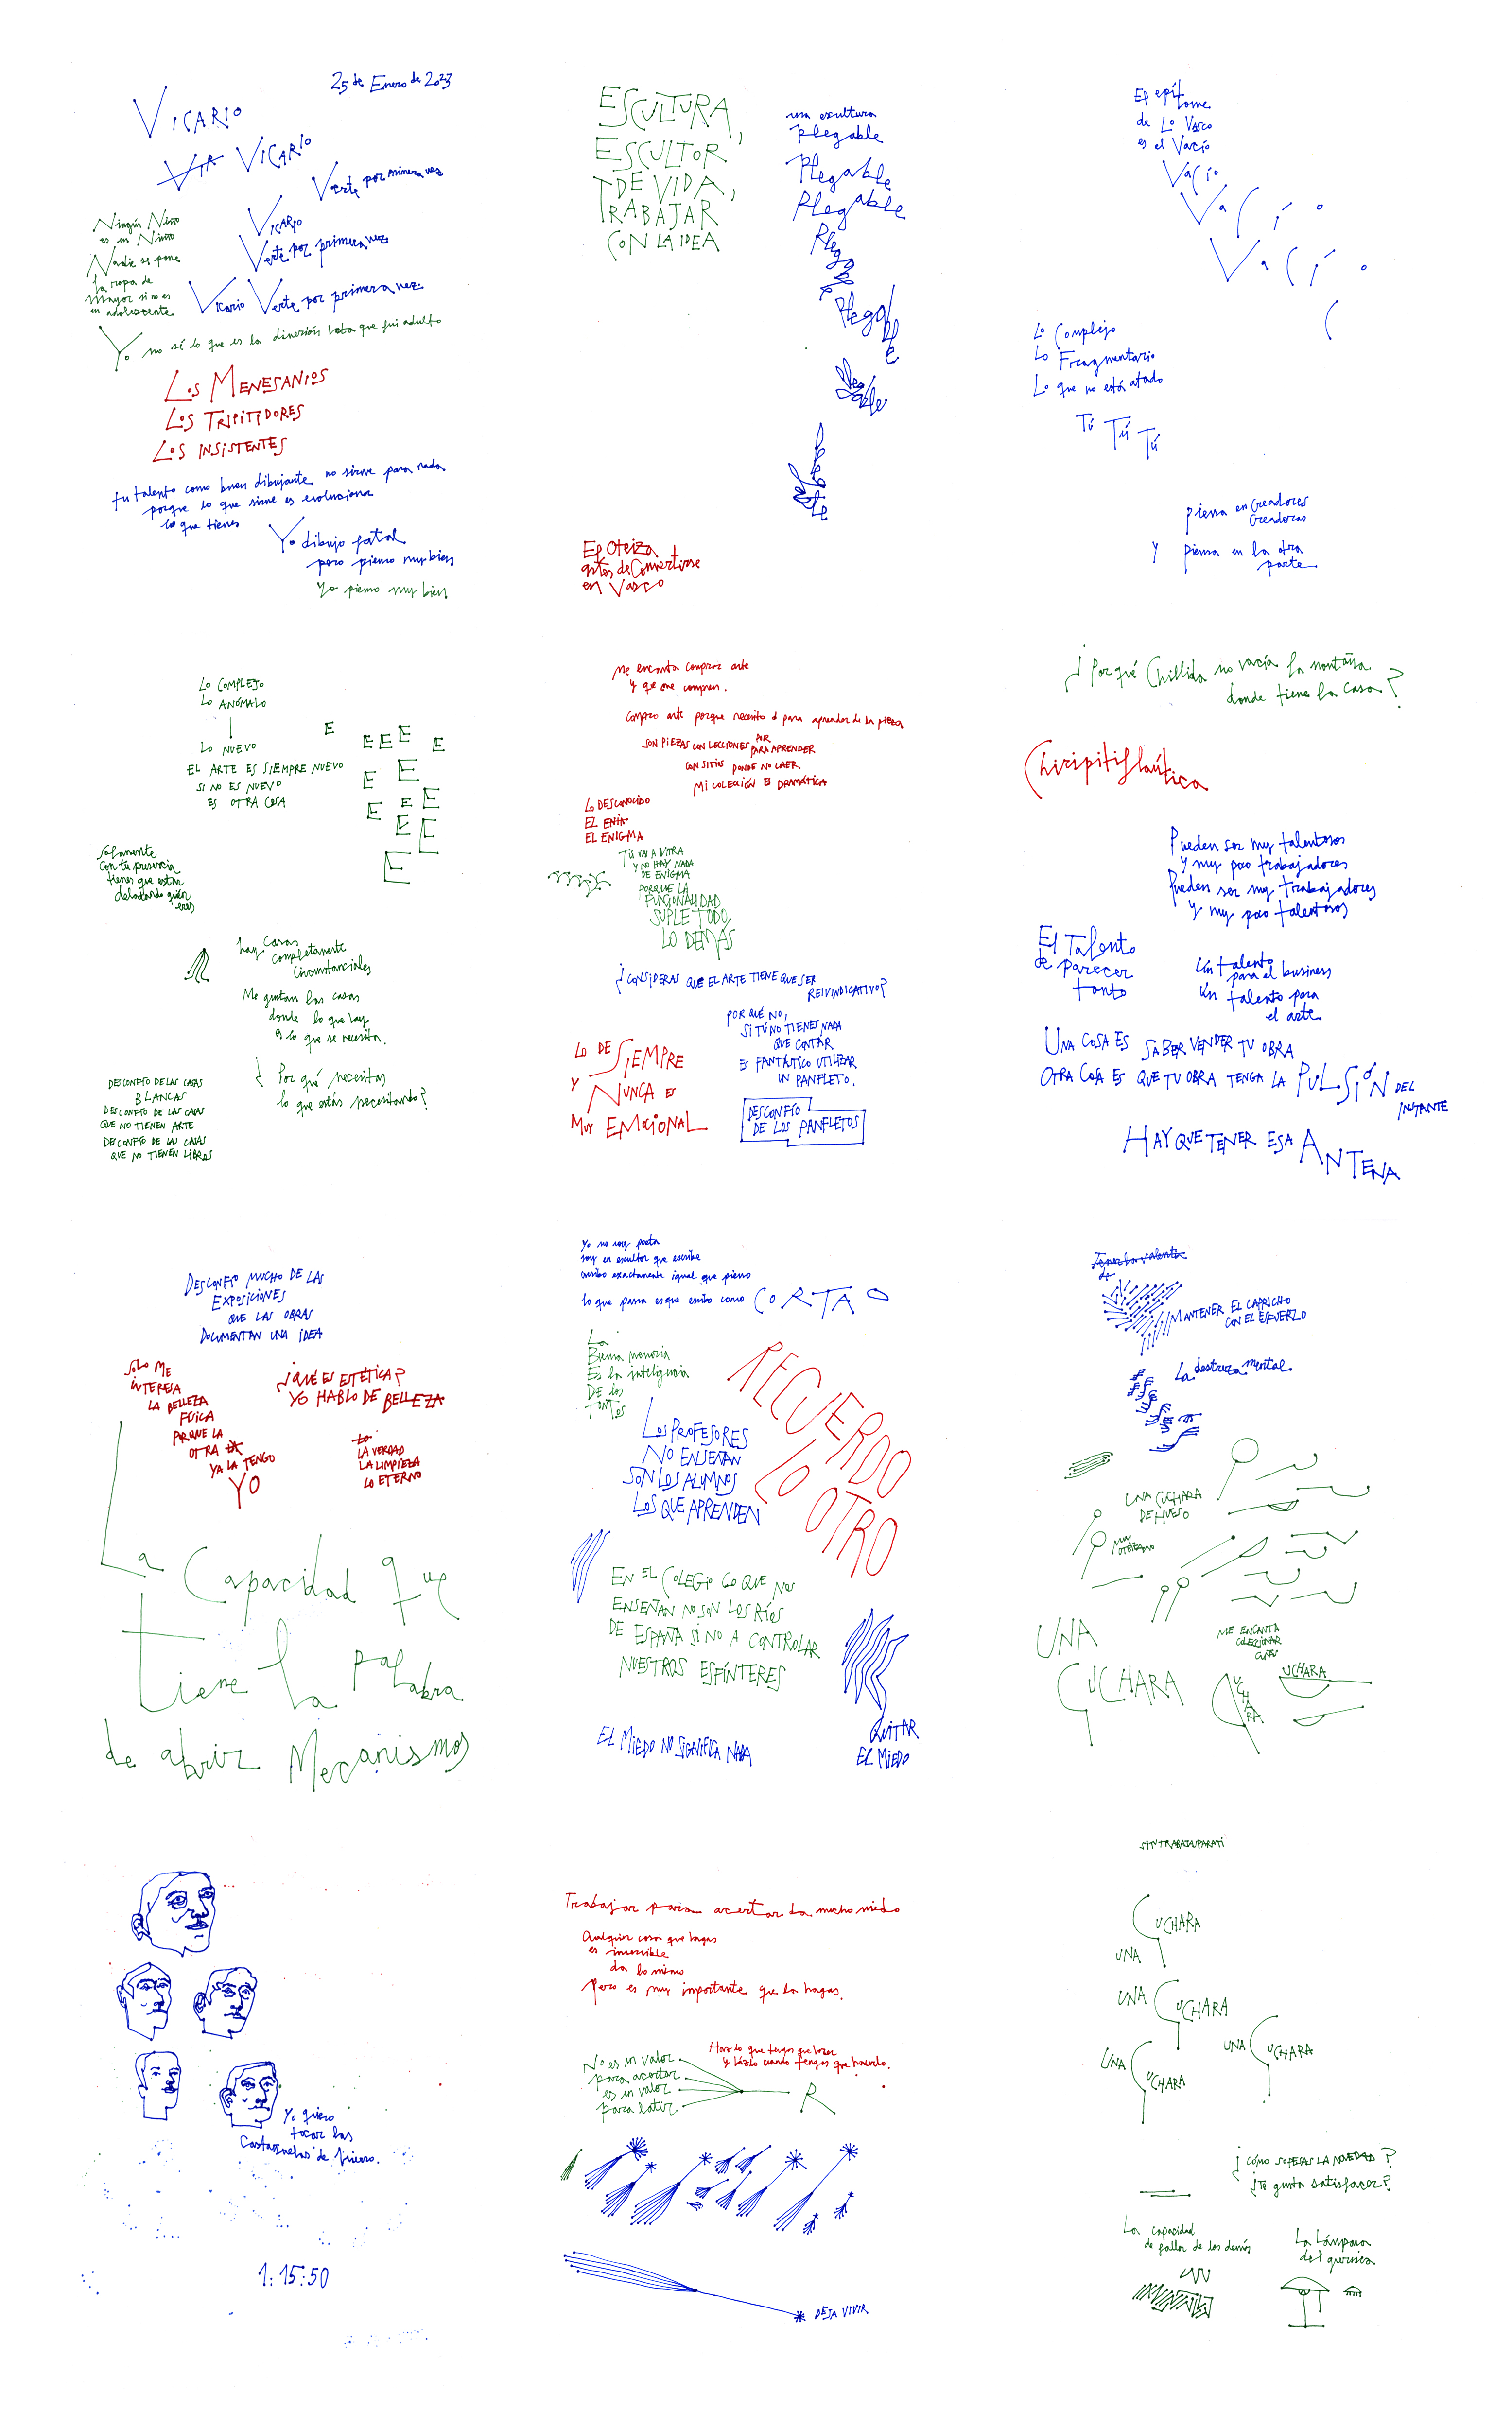 25 de Enero de 2023
VICARIO
VIA VICARIO
Verte por primera vez
VICARIO
Verte por primera vez
Vicario Verte por primera vez
Ningún Niño
es un Niño
Nadie se pone
la ropa de
mayor si no es
un adolescente
Yo no sé lo que es la diversión hasta que fui adulto
LOS MENESANIOS
LOS TRIPITIDORES
LOS INSISTENTES
tu talento como buen dibujante no sirve para nada
porque lo que sirve es evoluciona
lo que tienes
Yo dibujo fatal
pero pienso muy bien
Yo pienso muy bien
ESCULTURA,
ESCULTOR
DE VIDA,
TRABAJAR
CON LA IDEA
una escultura
plegable
Plegable
Plegable
Plegable
Plegable
Plegable
Plegable
El Oteiza
antes de Convertirse
en Vasco
El epítome
de Lo Vasco
es el Vacío
Vacío
Vacío
Vacío
Lo Complejo
Lo Fragmentario
Lo que no está atado
Tú Tú Tú
piensa en Creadores
Creadoras
Y piensa en la otra
parte
LO COMPLEJO
LO ANÓMALO
LO NUEVO
EL ARTE ES SIEMPRE NUEVO
SI NO ES NUEVO
ES OTRA COSA
E
E E E E
E E
E E E
E E
E
Solamente
con tu presencia
tienes que estar
delatando quién
eres
hay Casas
completamente
Circunstanciales
Me gustan las casas
donde lo que hay
es lo que se necesita.
¿Por qué necesitas
lo que estás necesitando?
DESCONFÍO DE LAS CASAS
BLANCAS
DESCONFÍO DE LAS CASAS
QUE NO TIENEN ARTE
DESCONFÍO DE LAS CASAS
QUE NO TIENEN LIBROS
Me encanta comprar arte
y que me compren.
Compro arte porque necesito para aprender de la pieza
SON PIEZAS CON LECCIONES POR
PARA APRENDER
CON SITIOS DONDE NO CAER.
MI COLECCIÓN ES DRAMÁTICA
LO DESCONOCIDO
EL ENI
EL ENIGMA
TÚ VAS A VITRA
Y NO HAY NADA
DE ENIGMA
PORQUE LA
FUNCIONALIDAD
SUPLE TODO
LO DEMÁS
¿CONSIDERAS QUE EL ARTE TIENE QUE SER
REIVINDICATIVO?
POR QUÉ NO,
SI TÚ NO TIENES NADA
QUE CONTAR
ES FANTÁSTICO UTILIZAR
UN PANFLETO.
LO DE SIEMPRE
Y NUNCA ES
MUY EMOCIONAL
DESCONFÍO
DE LOS PANFLETOS
¿Por qué Chillida no vacía la montaña
donde tiene la casa?
Chiripitifláutica
Pueden ser muy talentosos
y muy poco trabajadores
Pueden ser muy trabajadores
y muy poco talentosos
El Talento
de parecer
tonto
Un talento
para el business
Un talento para
el arte
UNA COSA ES SABER VENDER TU OBRA
OTRA COSA ES QUE TU OBRA TENGA LA PULSIÓN DEL
INSTANTE
HAY QUE TENER ESA ANTENA
DESCONFÍO MUCHO DE LAS
EXPOSICIONES
QUE LAS OBRAS
DOCUMENTAN UNA IDEA
SOLO ME
INTERESA
LA BELLEZA
FÍSICA
PORQUE LA
OTRA
YA LA TENGO
YO
¿QUÉ ES ESTÉTICA?
YO HABLO DE BELLEZA
LO
LA VERDAD
LA LIMPIEZA
LO ETERNO
La Capacidad que
tiene la palabra
de abrir Mecanismos
Yo no soy poeta
soy un escultor que escribe
escribo exactamente igual que pienso
lo que pasa es que escribo como CORTAO
La
Buena memoria
Es la inteligencia
De los
TONTOS
RECUERDO
LO OTRO
LOS PROFESORES
NO ENSEÑAN
SON LOS ALUMNOS
LOS QUE APRENDEN
EN EL COLEGIO LO QUE NOS
ENSEÑAN NO SON LOS RÍOS
DE ESPAÑA SI NO A CONTROLAR
NUESTROS ESFÍNTERES
EL MIEDO NO SIGNIFICA NADA
QUITAR
EL MIEDO
MANTENER EL CAPRICHO
CON EL ESFUERZO
La destreza mental
UNA CUCHARA
DE HUESO
MUY
OTEIZIANO
UNA
CUCHARA
ME ENCANTA
COLECCIONAR
CUCHARA
CUCHARA
Yo quiero
tocar las
Castañuelas de fuerzo.
1:15:50
Trabajar para acertar da mucho miedo
Cualquier cosa que hagas
es inservible
da lo mismo
Pero es muy importante que la hagas.
Haz lo que tengas que hacer
y hazlo cuando tengas que hacerlo.
No es un valor
para acertar
es un valor
para latir.
R
DEJA VIVIR
SI TU TRABAJAS PARA TI
CUCHARA
UNA
UNA CUCHARA
UNA CUCHARA
UNA CUCHARA
¿CÓMO SOPESAS LA NOVEDAD?
¿Te gusta satisfacer?
La capacidad
de fallar de los demás
La Lámpara
del guernica